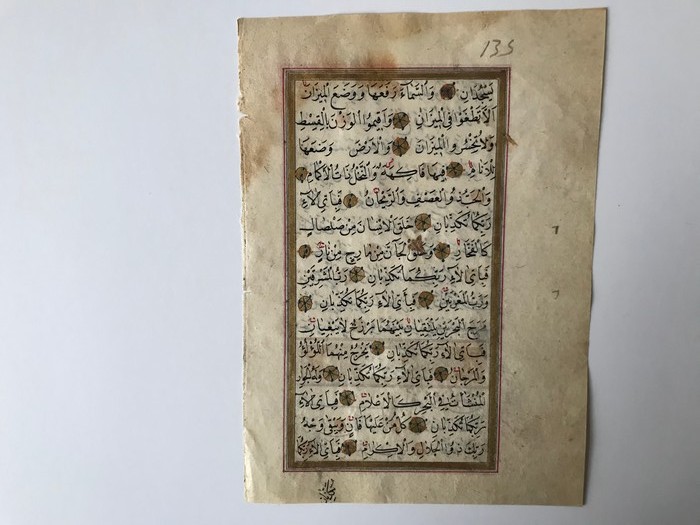 135
يَسْجُدَانِ وَالسَّمَاءَ رَفَعَهَا وَوَضَعَ الْمِيزَانَ
اَلَّا تَطْغَوْا فِي الْمِيزَانِ وَاَقِيمُوا الْوَزْنَ بِالْقِسْطِ
وَلَا تُخْسِرُوا الْمِيزَانَ وَالْاَرْضَ وَضَعَهَا
لِلْاَنَامِ فِيهَا فَاكِهَةٌ وَالنَّخْلُ ذَاتُ الْاَكْمَامِ
وَالْحَبُّ ذُو الْعَصْفِ وَالرَّيْحَانُ فَبِاَيِّ اٰلَاءِ
رَبِّكُمَا تُكَذِّبَانِ خَلَقَ الْاِنْسَانَ مِنْ صَلْصَالٍ
كَالْفَخَّارِ وَخَلَقَ الْجَانَّ مِنْ مَارِجٍ مِنْ نَارٍ
فَبِاَيِّ اٰلَاءِ رَبِّكُمَا تُكَذِّبَانِ رَبُّ الْمَشْرِقَيْنِ
وَرَبُّ الْمَغْرِبَيْنِ فَبِاَيِّ اٰلَاءِ رَبِّكُمَا تُكَذِّبَانِ
مَرَجَ الْبَحْرَيْنِ يَلْتَقِيَانِ بَيْنَهُمَا بَرْزَخٌ لَا يَبْغِيَانِ
فَبِاَيِّ اٰلَاءِ رَبِّكُمَا تُكَذِّبَانِ يَخْرُجُ مِنْهُمَا اللُّؤْلُؤُ
وَالْمَرْجَانُ فَبِاَيِّ اٰلَاءِ رَبِّكُمَا تُكَذِّبَانِ وَلَهُ الْجَوَارِ
الْمُنْشَاٰتُ فِي الْبَحْرِ كَالْاَعْلَامِ فَبِاَيِّ اٰلَاءِ
رَبِّكُمَا تُكَذِّبَانِ كُلُّ مَنْ عَلَيْهَا فَانٍ وَيَبْقٰى وَجْهُ
رَبِّكَ ذُو الْجَلَالِ وَالْاِكْرَامِ فَبِاَيِّ اٰلَاءِ رَبِّكُمَا